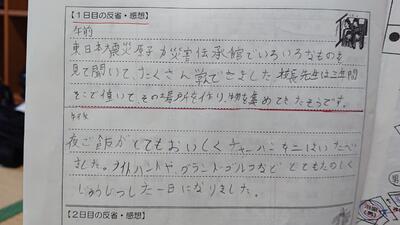 【1日目の反省・感想】
午前
東日本大震災原子力災害伝承館でいろいろなものを
見て聞いて、たくさん学できました。校長先生は三年間
そこで働いて、その場所を作り、物を集めてきたそうです。
午後
夜ご飯がとてもおいしくチャーハンを二はいたべ
ました。ナイトハンドや、グランドゴルフなど とてもたのしく
じゅうじつした一日になりました。
【2日目の反省・感想】